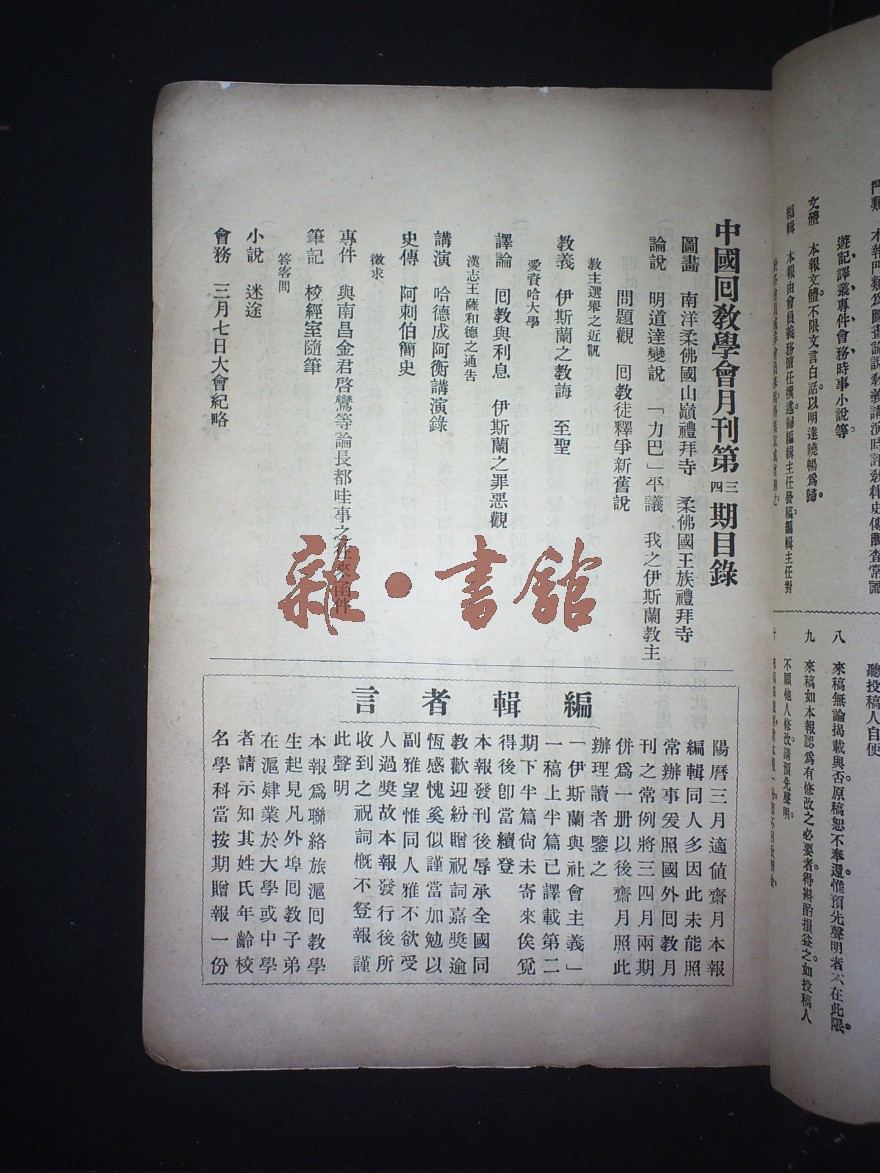 門類　本報門類爲圖畫論說教義講演時評教律史傳調查常識
遊記譯叢專件會務時事小說等
文體　本報文體。不限文言白話。以明達曉暢爲歸。
編輯　本報由會員義務擔任撰述。歸編輯主任發稿。編輯主任對
聽投稿人自便
八　來稿無論揭載與否。原稿恕不奉還。惟預先聲明者不在此限。
九　來稿如本報認爲有修改之必要者。得斟酌損益之。如投稿人
不願他人修改。請預先聲明。
中國回教學會月刊第三四期目錄
圖畫　南洋柔佛國山巔禮拜寺　柔佛國王族禮拜寺
論說　明道達變說　「力巴」平議　我之伊斯蘭教主
問題觀　回教徒釋爭新舊說
教主選舉之近説
教義　伊斯蘭之教誨　至聖
愛資哈大學
譯論　回教與利息　伊斯蘭之罪惡觀
漢志王薩和德之通告
講演　哈德成阿衡講演錄
史傳　阿刺伯簡史
徵求
專件　與南昌金君啓鸞等論長都哇事之往來函件
筆記　校經室隨筆
答客問
小說　迷途
會務　三月七日大會紀略
雜·書館
編輯者言
陽曆三月適值齋月本報
編輯同人多因此未能照
常辦事爰照國外回教月
刊之常例將三四月兩期
併爲一册以後齋月照此
辦理讀者鑒之
「伊斯蘭與社會主義」
一稿上半篇已譯載第二
期下半篇尚未寄來俟覓
得後卽當續登
本報發刊後辱承全國同
教歡迎紛贈祝詞嘉獎逾
恆感愧奚似謹當加勉以
副雅望惟同人雅不欲受
人過獎故本報發行後所
收到之祝詞槪不登報謹
此聲明
本報爲聯絡旅滬回教學
生起見凡外埠回教子弟
在滬肄業於大學或中學
者請示知其姓氏年齡校
名學科當按期贈報一份